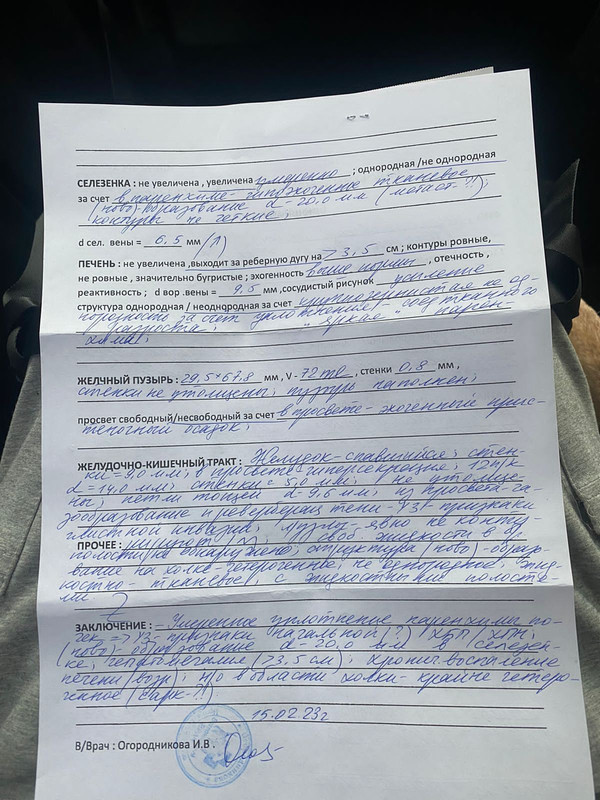 СЕЛЕЗЕНКА : не увеличена , увеличена умеренно ; однородная /не однородная
за счет в паренхиме - гипоэхогенное тканевое
(ново)-образование d - 20,0 мм (метаст-?!);
контуры не четкие;
d сел. вены = 6,5 мм (N)
ПЕЧЕНЬ : не увеличена ,выходит за реберную дугу на > 3,5 см ; контуры ровные,
не ровные , значительно бугристые ; эхогенность выше нормы , отечность ,
реактивность ; d вор .вены = 9,5 мм ,сосудистый рисунок усиление
структура однородная / неоднородная за счет крупнозернистая не од-
нородность за счет уплотнения соед.тканного
разроста; парен-
хима;
ЖЕЛЧНЫЙ ПУЗЫРЬ : 29,5×67,8 мм , V - 72 ml , стенки 0,8 мм ,
стенки не утолщены; пузырь наполнен;
просвет свободный/несвободный за счет в просвете - эхогенный прис-
теночный осадок;
ЖЕЛУДОЧНО-КИШЕЧНЫЙ ТРАКТ : Желудок - спавшийся; стен-
ки = 9,0 мм; в просвете гиперсекреция; 12 п/к
d = 14,0 мм; стенки = 5,0 мм; не утолще-
ны; петли тощей d - 9,6 мм; из просвета га-
зообразование и реверберац. тени - УЗ - признаки
глистной инвазии; явно не конту-
ПРОЧЕЕ : своб. жидкости в бр.
полости не обнаружено; структура (ново)-образо-
вание на холке - гетерогенные; не однородное; жид-
костно - тканевое; с жидкостными полостя-
ми
ЗАКЛЮЧЕНИЕ : - Умеренное уплотнение паренхимы по-
чек => УЗ - признаки начальной (?) ХБП ХПН;
(ново)- образование d - 20,0 мм в селезен-
ке; гепатомегалия (> 3,5 см); хронич. воспаление
печени н/о в области холки - крайне гетеро-
генное (сарк-?!).
15.02.23г
В/Врач : Огородникова И.В .